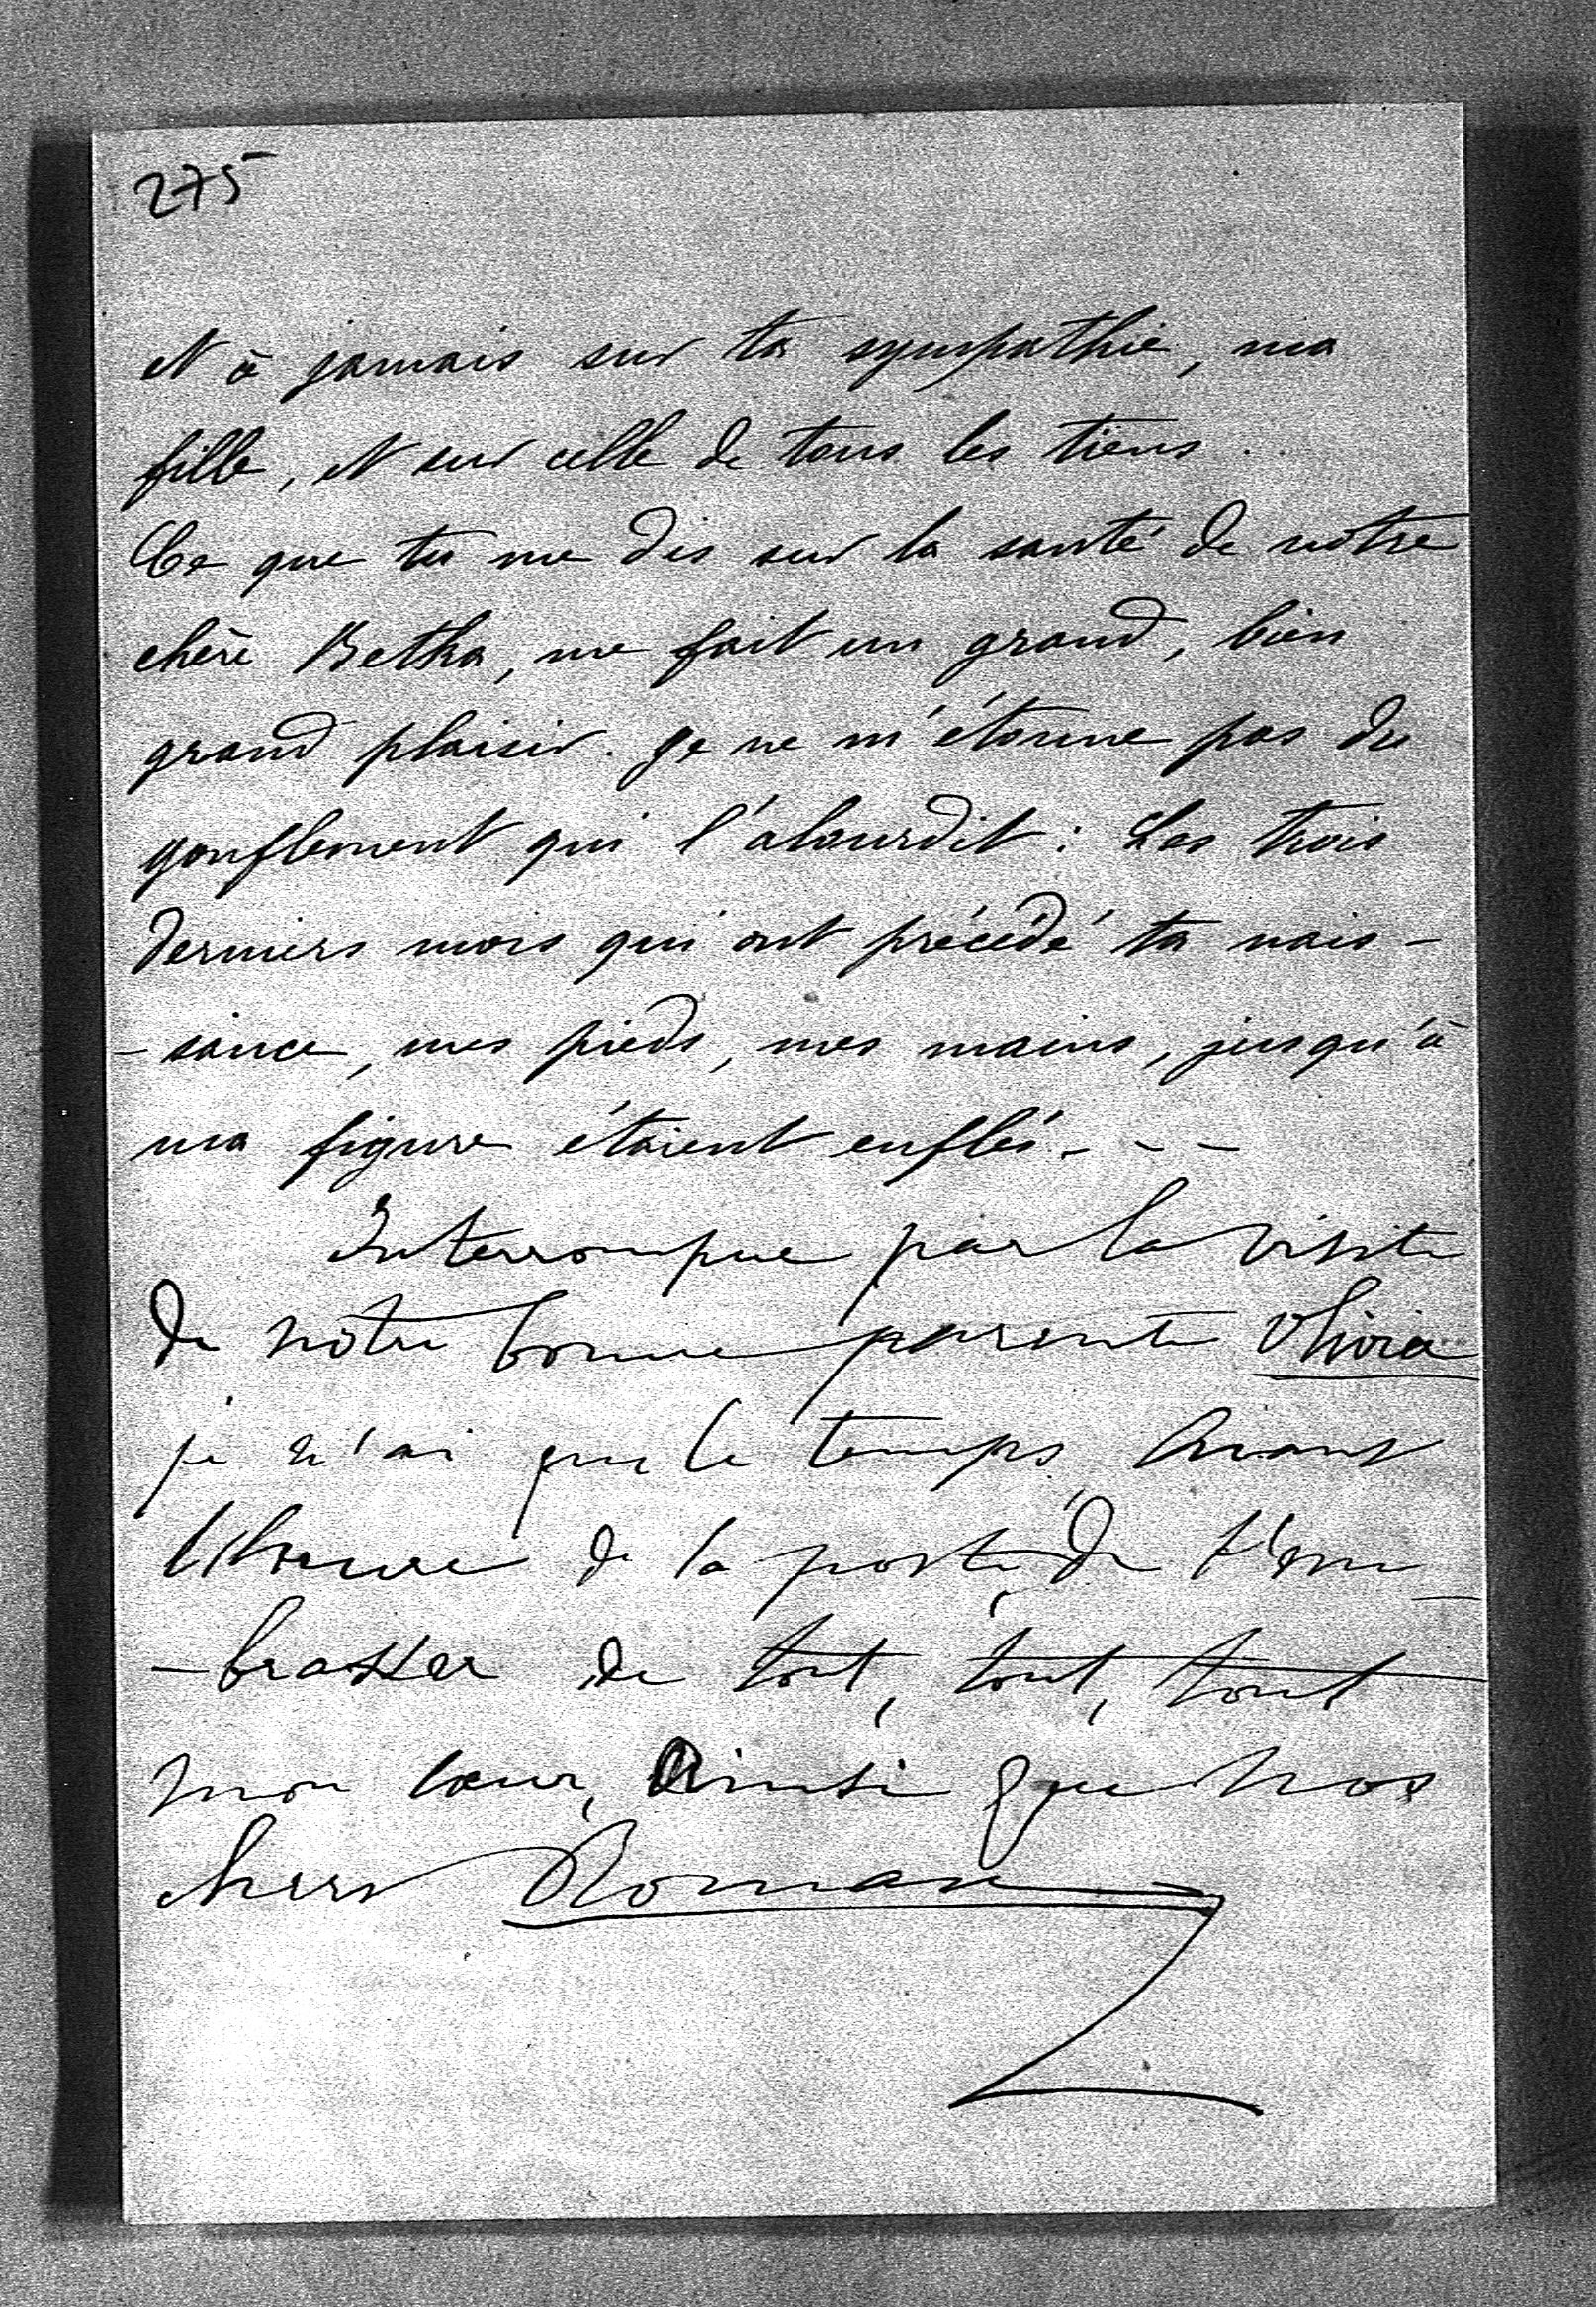 275
et à jamais sur ta sympathie, ma
fille, et sur celle de tous les tiens..
Ce que tu me dis sur la santé de notre
chère Betka, me fait un grand, bien
grand plaisir. Je ne m'étonne pas du
gonflement qui l'alourdit : Les trois
derniers mois qui ont précédé ta nais-
-sance, mes pieds, mes mains, jusqu'à
ma figure étaient enflés. - -
Interrompue par la visite
de notre bonne parente Olivia
je n'ai que le temps, avant
l'heure de la poste, de t'em_
-brasser de tout, tout, tout
mon cœur, Ainsi que nos
chers Roman